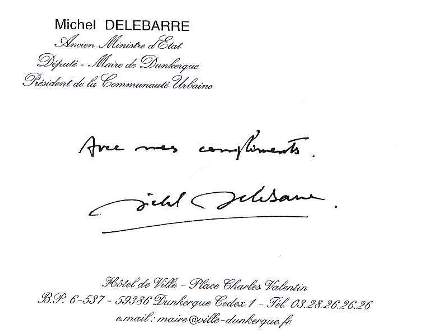 Michel DELEBARRE
Ancien Ministre d'Etat
Député - Maire de Dunkerque
Président de la Communauté Urbaine
Avec mes compliments.
Michel Delebarre.
Hôtel de Ville - Place Charles Valentin
B.P. 6-537 - 59386 Dunkerque Cedex 1 - Tél. 03.28.26.26.26
email : maire@ville-dunkerque.fr